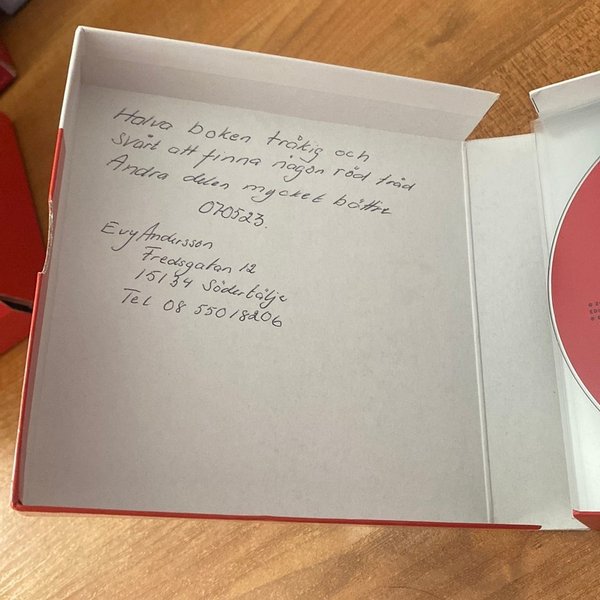 Halva boken tråkig och
svårt att finna någon röd tråd
Andra delen mycket bättre
070523.
Evy Andersson
Fredsgatan 12
15134 Södertälje
Tel 08 55018206